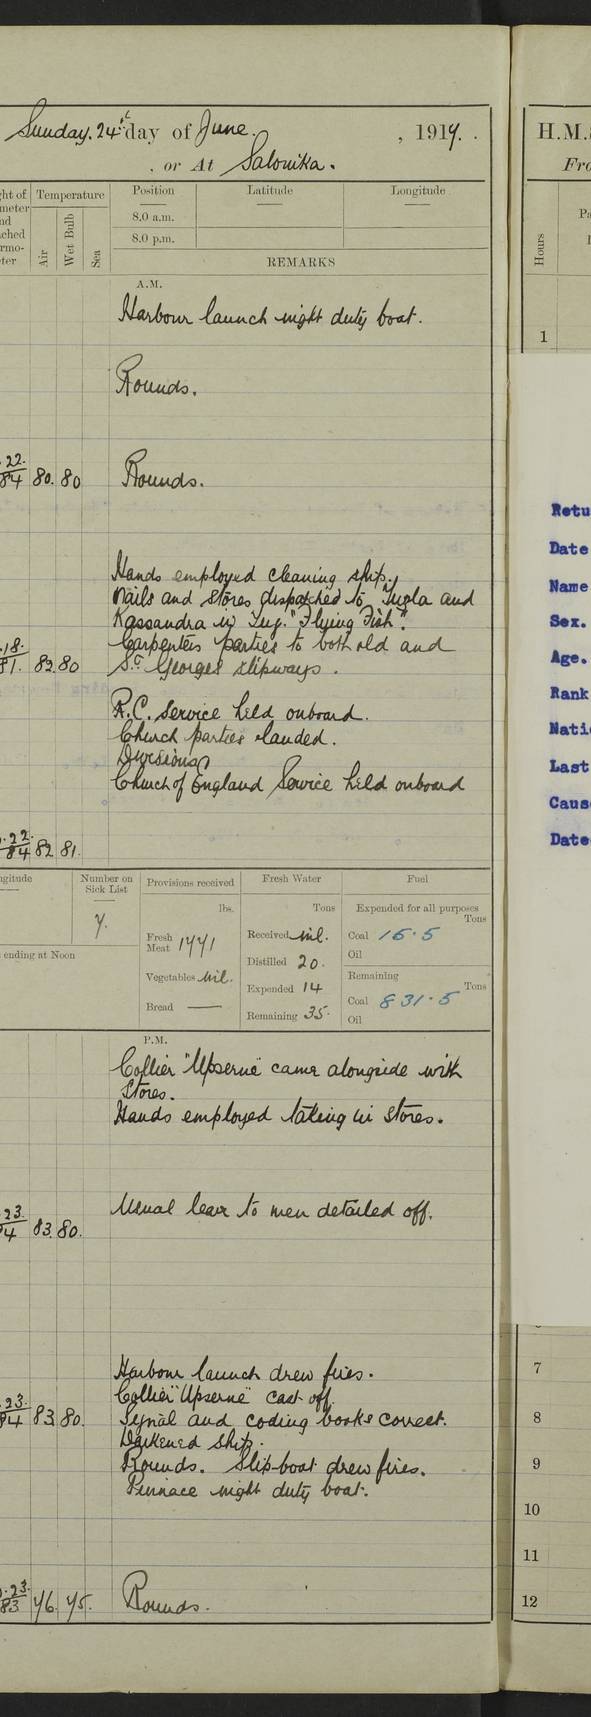 Sunday. 24th day of June. , 1917.
, or At Salonika.
H.M.S
Fro
ght of
meter
nd
ched
rmo-
ter
Temperature
Air
Wet Bulb
Sea
Position
Latitude
Longitude
8.0 a.m.
8.0 p.m.
REMARKS
Hours
Pa
A.M.
Harbour launch night duty boat.
1
Rounds.
.22.
84 80. 80 Rounds.
Hands employed cleaning ship.
Mails and stores dispatched to Tuzla and
Kassandra in Tug. "Flying Fish".
Carpenters parties to both old and
.18.
81. 82. 80 St Georges slipways.
R.C. Service held onboard.
Church parties landed.
Divisions
Church of England Service held onboard
.22.
84 82 81.
Retu
Date
Name
Sex.
Age.
Rank
Nati
Last
Caus
Date
ngitude
Number on
Sick List
7.
ending at Noon
Provisions received
lbs.
Fresh Meat 1771
Vegetables Nil.
Bread —
Fresh Water
Tons
Received Nil.
Distilled 20.
Expended 14
Remaining 35.
Fuel
Expended for all purposes
Tons
Coal 15.5
Oil
Remaining
Tons
Coal 831.5
Oil
P.M.
Collier "Upserne" came alongside with
Stores.
Hands employed taking in stores.
Usual leave to men detailed off.
.23.
4 83. 80.
Harbour launch drew fires.
7
Collier "Upserne" cast off.
.23.
84 83. 80. Signal and coding books correct.
8
Darkened ship.
Rounds. Slip-boat drew fires.
9
Pinnace night duty boat.
10
11
.23.
83 76. 75. Rounds.
12